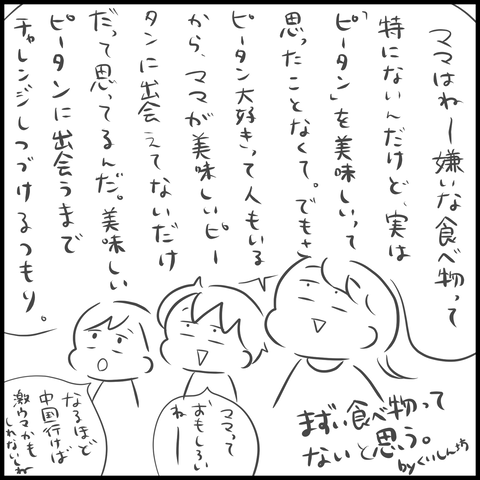 ママはねー嫌いな食べ物って
特にないんだけど、実は
「ピータン」を美味しいって
思ったことなくて。でもさ
ピータン大好きって人もいる
から、ママが美味しいピー
タンに出会えてないだけ
だって思ってるんだ。美味しい
ピータンに出会うまで
チャレンジしつづけるつもり。
ママって
おもしろい
ねー
なるほど
中国行けば
激ウマかも
しれないしね
まずい食べ物って
ないと思う。
byくいしん坊